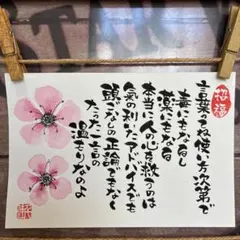 招福
言葉のちね使い方次第で
毒にもなるし
薬にもなる
本当に人の心を救うのは
氣の利いたアドバイスでも
頭でっかちの正論でもなく
たった一言の
温もりなんよ